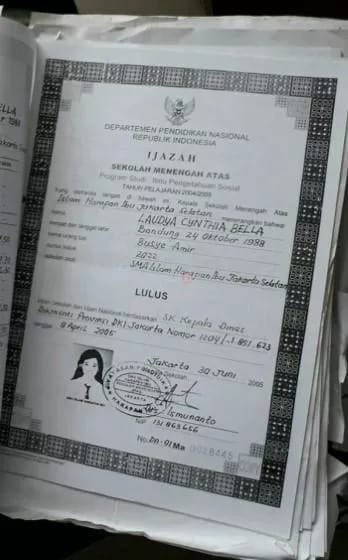 DEPARTEMEN PENDIDIKAN NASIONAL
REPUBLIK INDONESIA
IJAZAH
SEKOLAH MENENGAH ATAS
Program Studi : Ilmu Pengetahuan Sosial
TAHUN PELAJARAN 2004/2005
Yang bertanda tangan di bawah ini, Kepala Sekolah Menengah Atas
Islam Harapan Ibu Jakarta Selatan menerangkan bahwa:
nama LAUDYA CYNTHIA BELLA
tempat dan tanggal lahir Bandung 24 Oktober 1988
nama orang tua Busye Amir
nomor induk 2022
sekolah asal SMA Islam Harapan Ibu Jakarta Selatan
LULUS
Ujian Sekolah dan Ujian Nasional berdasarkan SK Kepala Dinas
Provinsi DKI Jakarta Nomor
tanggal 8 April 2005
Jakarta 30 Juni 2005
Sekolah,
HARAPAN IBU
JAKARTA
Ismunanto
NIP 131 863 656
No. DN-01 Ma 0028445
BELLA
1988